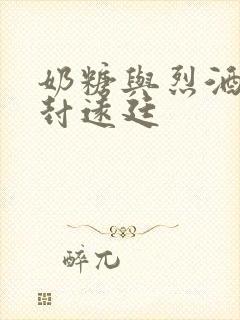 奶糖與烈酒
封遠廷
醉兀